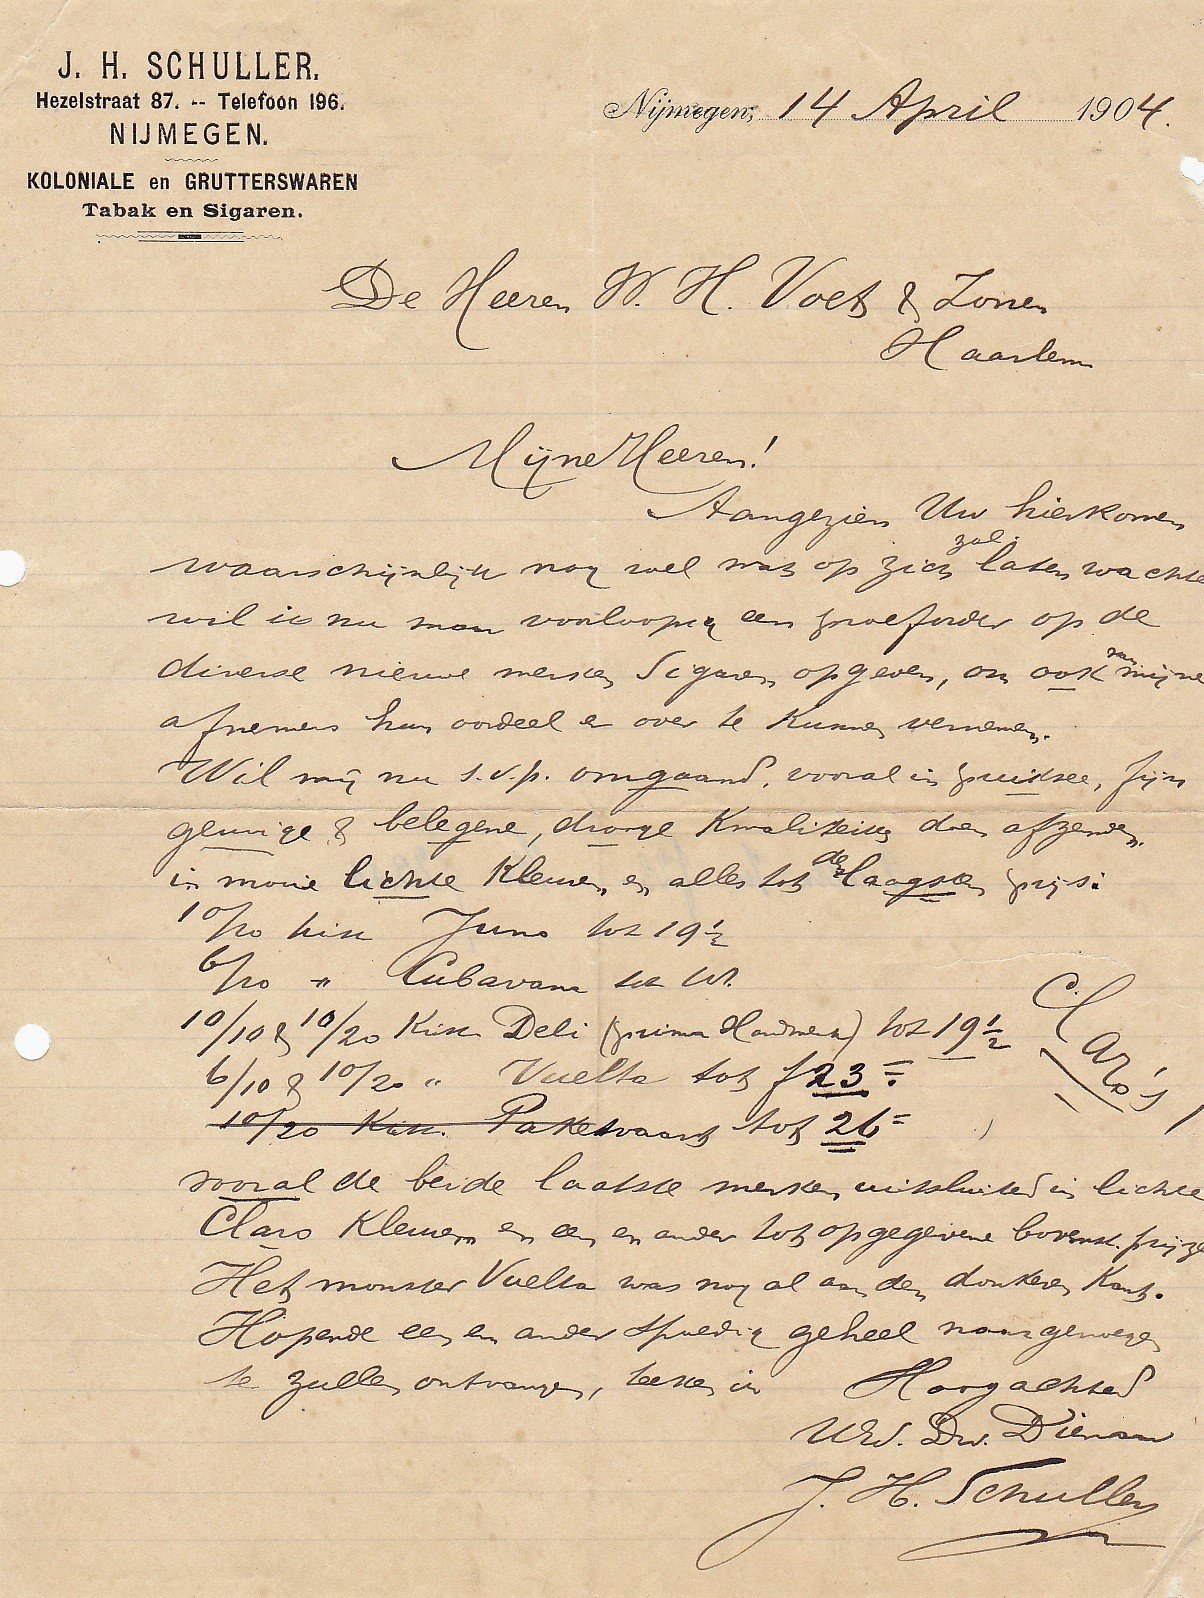 J. H. SCHULLER.
Hezelstraat 87. -- Telefoon 196.
NIJMEGEN.
KOLONIALE en GRUTTERSWAREN
Tabak en Sigaren.
Nijmegen, 14 April 1904.
De Heeren W. H. Voet & Zonen
Haarlem
Mijne Heeren!
Aangezien Uw hierkomen
waarschijnlijk nog wel wat op zich zal laten wachten
wil ik nu maar voorloopig een proeforder op de
diverse nieuwe merken Sigaren opgeven, om ook van mijne
afnemers hun oordeel er over te kunnen vernemen.
Wil mij nu s.v.p. omgaand, vooral in puike, fijn
geurige & belegene, droge Kwaliteiten doen afzenden
in mooie lichte Kleuren, en alles tot den laagsten prijs:
10/20 kist Juno tot 19½
6/20 " Cubavana
10/10 & 10/20 Kist Deli (prima Handwerk) tot 19½
6/10 & 10/20 " Vuelta tot f 23=
10/20 Kist. Paketvaart tot 26=
Claro's
vooral de beide laatste merken uitsluitend in lichte
Claro Kleuren en een en ander tot opgegevene bovenst. prijzen
Het monster Vuelta was nog al aan den donkeren Kant.
Hopende een en ander spoedig geheel naar genoegen
te zullen ontvangen, teeken ik Hoogachtend
UEd. Dw. Dienaar
J. H. Schuller